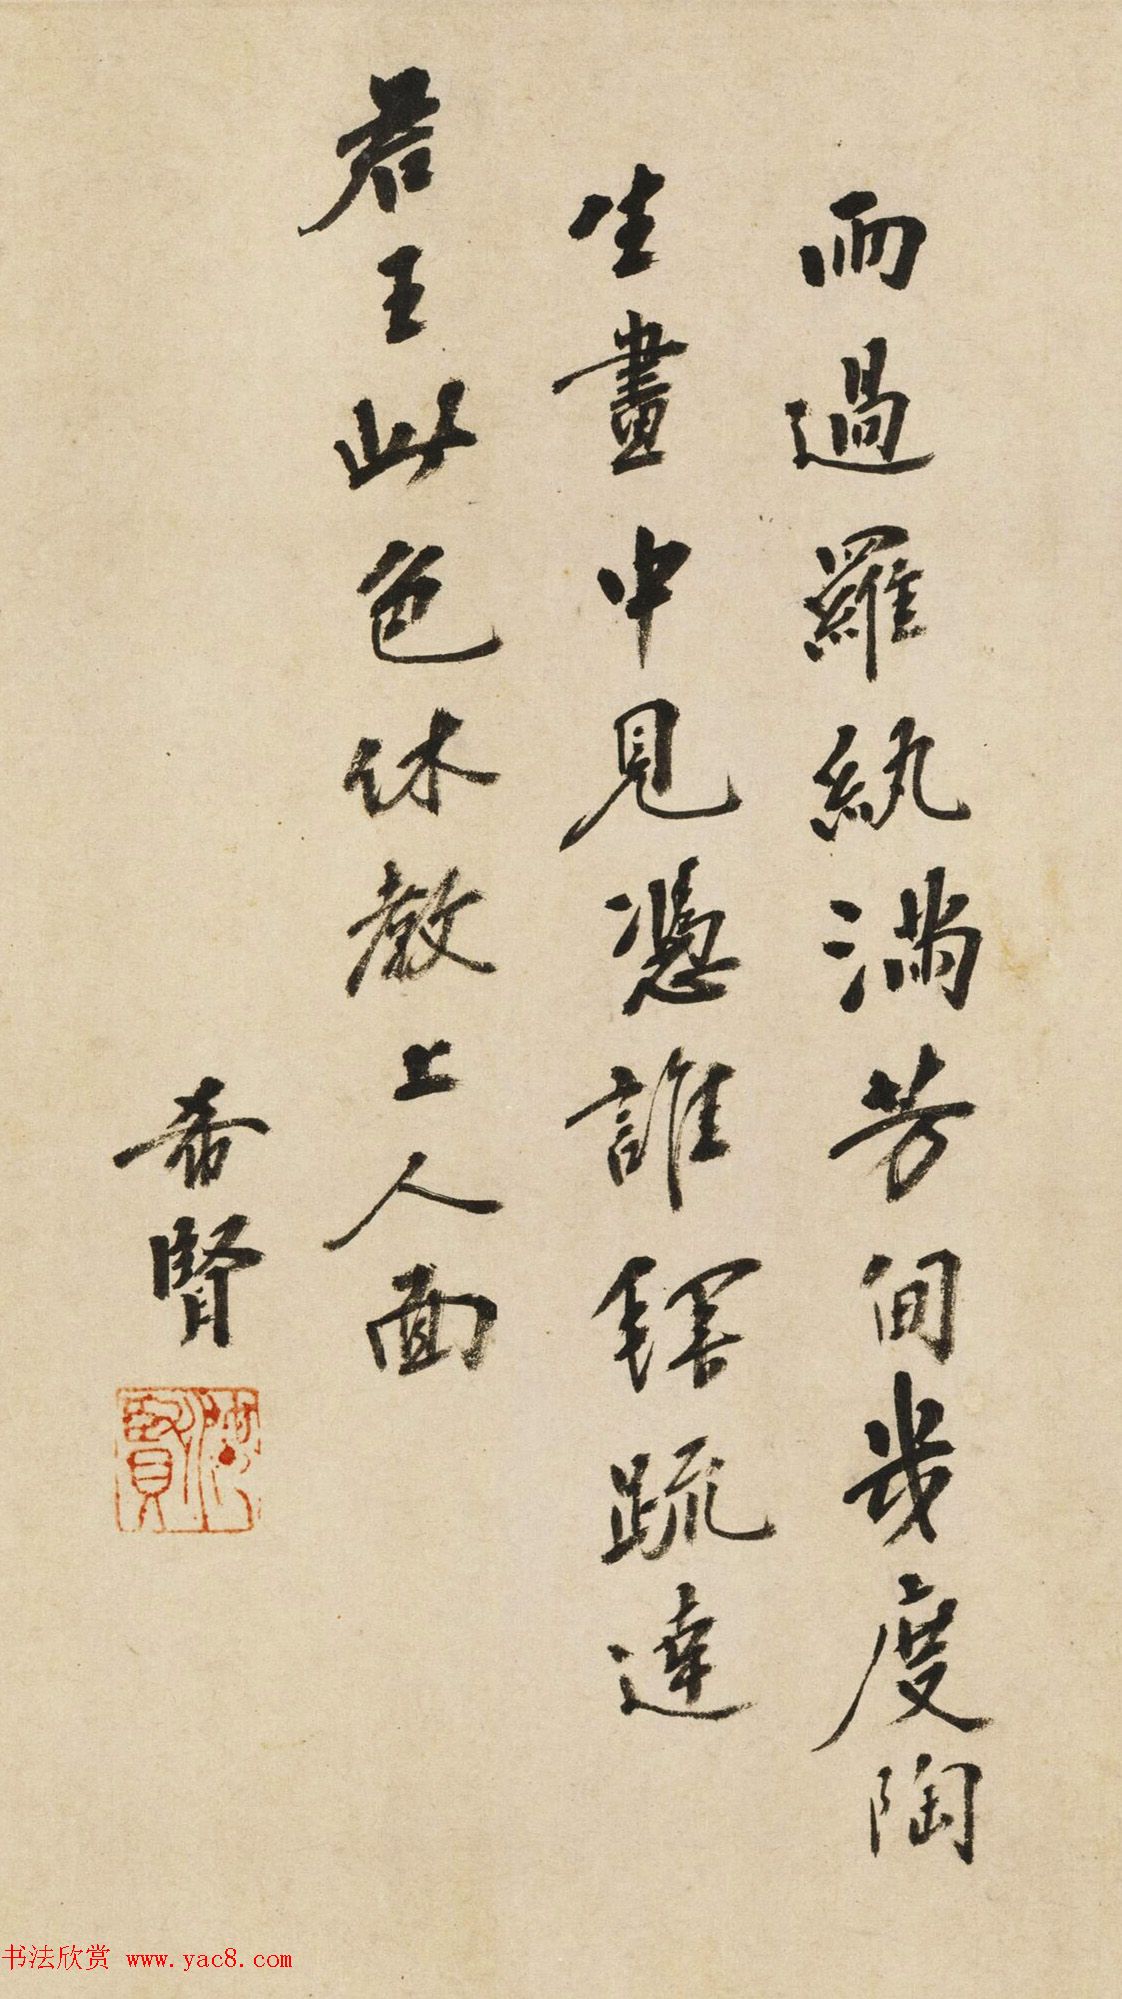 雨過羅紈滿芳間幾度陶
生畫中見憑誰疏達
君王此色休教上人面
希賢
书法欣赏 www.yac8.com